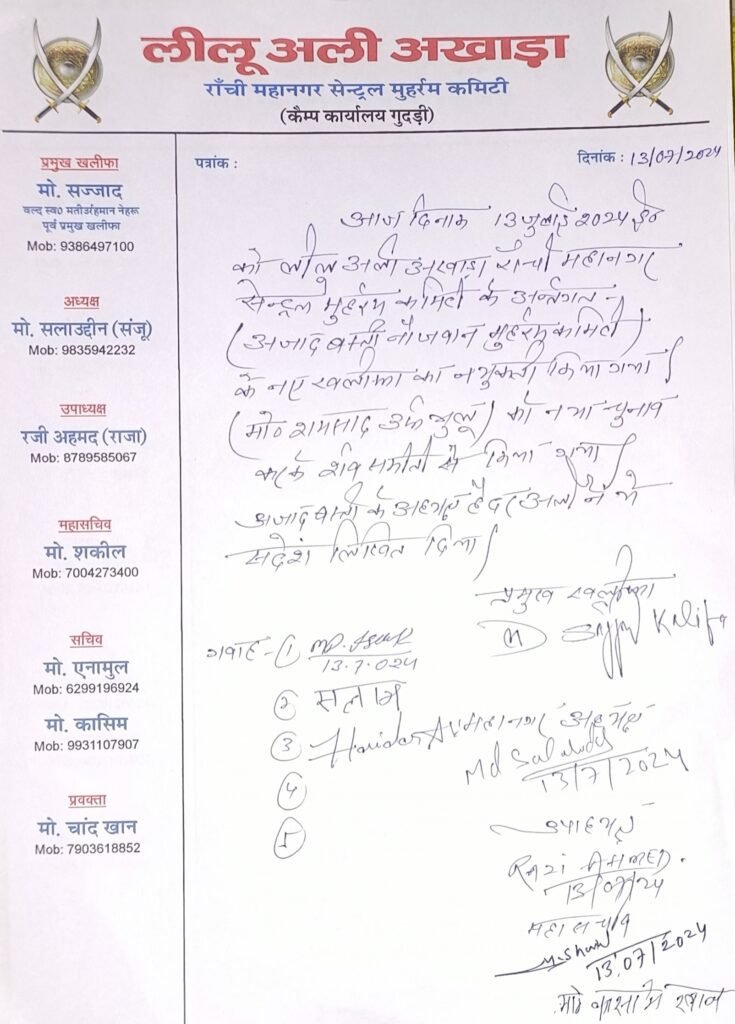 लीलू अली अखाड़ा
राँची महानगर सेन्ट्रल मुहर्रम कमिटी
(कैम्प कार्यालय गुदड़ी)
प्रमुख खलीफा
मो. सज्जाद
वल्द स्व० मतीउर्रहमान नेहरू
पूर्व प्रमुख खलीफा
Mob: 9386497100
अध्यक्ष
मो. सलाउद्दीन (संजू)
Mob: 9835942232
उपाध्यक्ष
रजी अहमद (राजा)
Mob: 8789585067
महासचिव
मो. शकील
Mob: 7004273400
सचिव
मो. एनामुल
Mob: 6299196924
मो. कासिम
Mob: 9931107907
प्रवक्ता
मो. चांद खान
Mob: 7903618852
पत्रांक :
दिनांक : 13/07/2024
आज दिनाक 13 जुलाई 2024 ई०
को लीलु अली अखाड़ा राँची महानगर
सेन्ट्रल मुहर्रम कमिटी के अर्न्तगत -
(अजाद बस्ती नौजवान मुहर्रम कमिटी)
के नए खलीफा का नयुक्ती किया गया।
(मो० शमसाद उर्फ गुलू) को नया चुनाव
करके किया गया।
अजाद बस्ती के हैदर अली ने
संदेश लिखित दिया।
प्रमुख खलीफा
Sajjad Kalifa
गवाह - 1
13.7.024
2 सलाम
3 Haidar महानगर
Md Salauddin
13/7/2024
4
5
Razi AHMED.
13/07/24
महासचिव
13/07/2024
मो० कासीम खान